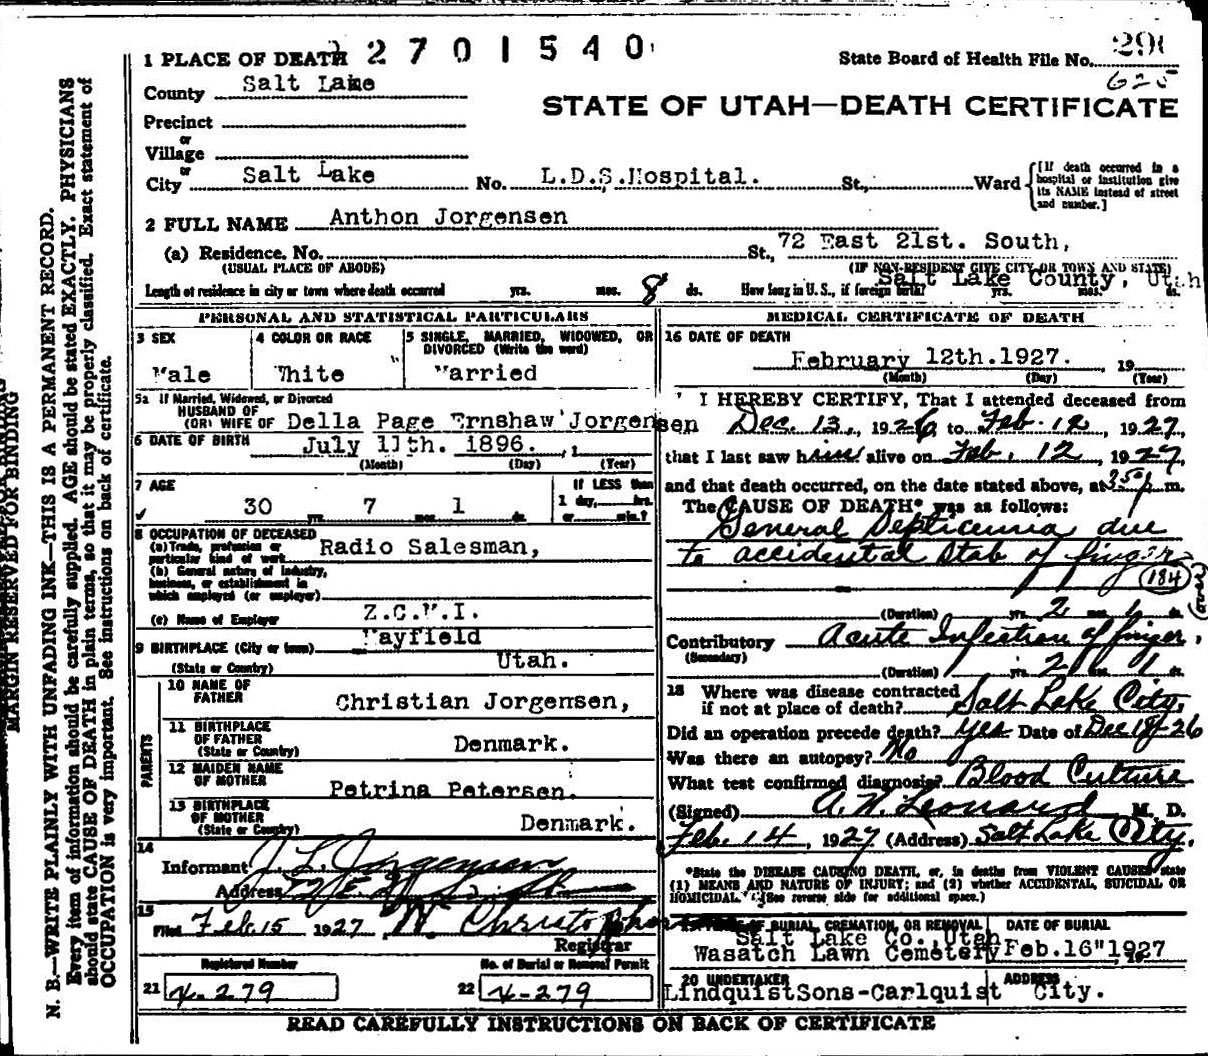 1 PLACE OF DEATH 2 7 0 1 5 4 0
State Board of Health File No. 290
625
County Salt Lake
STATE OF UTAH—DEATH CERTIFICATE
Precinct
or
Village
or
City Salt Lake No. L.D.S.Hospital. St., Ward
[If death occurred in a hospital or institution give its NAME instead of street and number.]
2 FULL NAME Anthon Jorgensen
(a) Residence. No. St., 72 East 21st. South,
(USUAL PLACE OF ABODE) (IF NON-RESIDENT GIVE CITY OR TOWN AND STATE)
Salt Lake County, Utah
Length of residence in city or town where death occurred yrs. mos. 8 ds. How long in U.S., if foreign birth? yrs. mos. ds.
PERSONAL AND STATISTICAL PARTICULARS
3 SEX
Male
4 COLOR OR RACE
White
5 SINGLE, MARRIED, WIDOWED, OR DIVORCED (Write the word)
Married
5a If Married, Widowed, or Divorced
HUSBAND OF
(OR) WIFE OF Della Page Ernshaw Jorgensen
6 DATE OF BIRTH July 11th. 1896. , 1
(Month) (Day) (Year)
7 AGE
30 yrs. 7 mos. 1 ds.
If LESS than
1 day, hrs.
or min.?
8 OCCUPATION OF DECEASED
(a) Trade, profession or
particular kind of work Radio Salesman,
(b) General nature of industry,
business, or establishment in
which employed (or employer)
(c) Name of Employer Z.C.M.I.
9 BIRTHPLACE (City or town) Mayfield
(State or Country) Utah.
PARENTS
10 NAME OF
FATHER Christian Jorgensen,
11 BIRTHPLACE
OF FATHER
(State or Country) Denmark.
12 MAIDEN NAME
OF MOTHER Petrina Petersen.
13 BIRTHPLACE
OF MOTHER
(State or Country) Denmark.
14
Informant J. L. Jorgensen
Address 72 E
15
Filed Feb 15 1927 W. Christopherson
Registrar
Registered Number
21 X-279
No. of Burial or Removal Permit
22 X-279
MEDICAL CERTIFICATE OF DEATH
16 DATE OF DEATH
February 12th.1927. 19
(Month) (Day) (Year)
I HEREBY CERTIFY, That I attended deceased from
Dec. 13, 1926 to Feb. 12, 1927,
that I last saw him alive on Feb. 12, 1927,
and that death occurred, on the date stated above, at 350 p m.
The CAUSE OF DEATH* was as follows:
General Septicemia due
to accidental stab of finger
184
(over)
(Duration) yrs. 2 mos. 1 ds.
Contributory Acute Infection of finger.
(Secondary)
(Duration) yrs. 2 mos. 1 ds.
18 Where was disease contracted
if not at place of death? Salt Lake City.
Did an operation precede death? yes Date of Dec 18-26
Was there an autopsy? No
What test confirmed diagnosis? Blood Culture
(Signed) A. N. Leonard M. D.
Feb. 14, 1927 (Address) Salt Lake City.
*State the DISEASE CAUSING DEATH, or, in deaths from VIOLENT CAUSES state
(1) MEANS AND NATURE OF INJURY; and (2) whether ACCIDENTAL, SUICIDAL OR
HOMICIDAL. (See reverse side for additional space.)
OF BURIAL, CREMATION, OR REMOVAL
Salt Lake Co., Utah
Wasatch Lawn Cemetery
DATE OF BURIAL
Feb.16"1927
20 UNDERTAKER
LindquistSons-Carlquist
ADDRESS
City.
READ CAREFULLY INSTRUCTIONS ON BACK OF CERTIFICATE
MARGIN RESERVED FOR BINDING
N. B.—WRITE PLAINLY WITH UNFADING INK—THIS IS A PERMANENT RECORD.
Every item of information should be carefully supplied. AGE should be stated EXACTLY. PHYSICIANS
should state CAUSE OF DEATH in plain terms, so that it may be properly classified. Exact statement of
OCCUPATION is very important. See instructions on back of certificate.